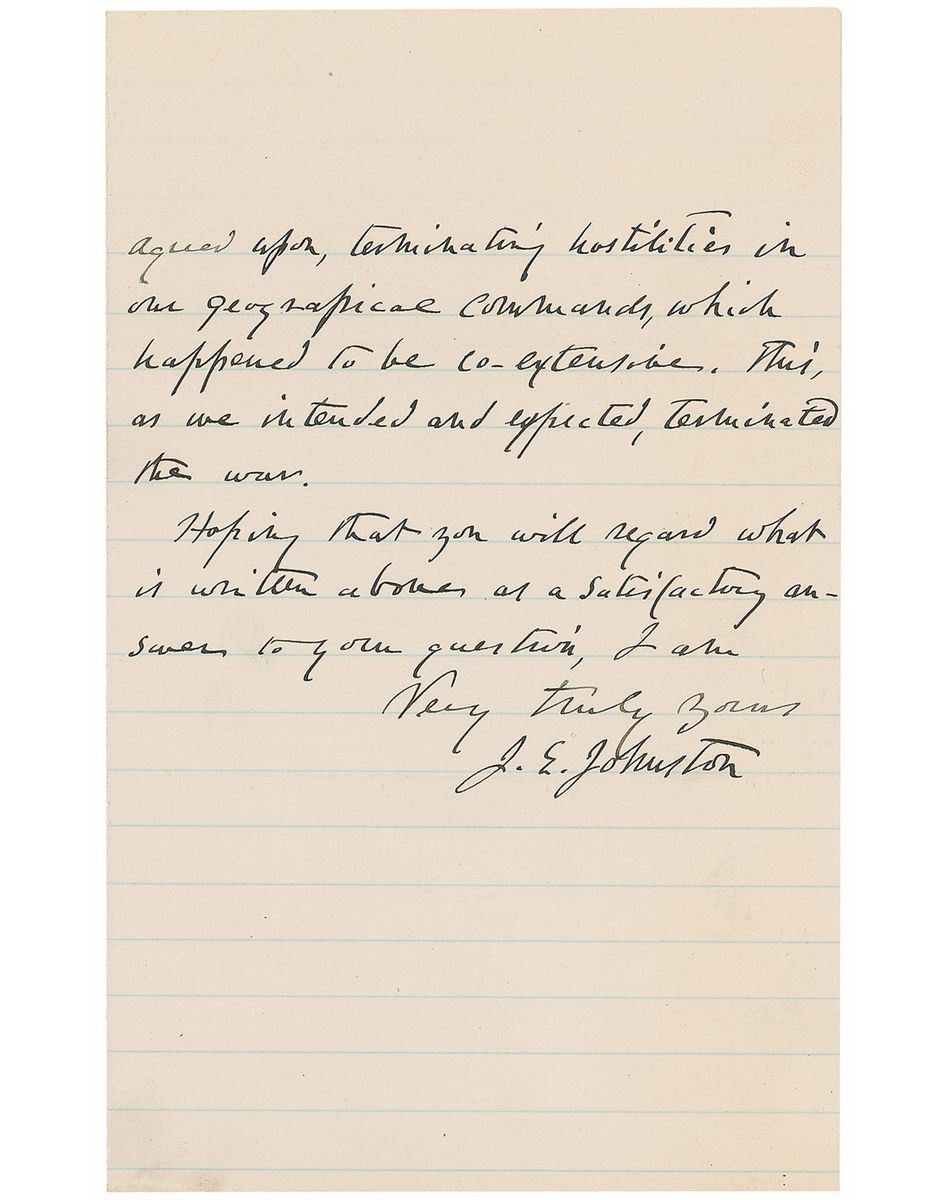 agreed upon, terminating hostilities in
our geographical commands, which
happened to be co-extensive. This,
as we intended and expected, terminated
the war.
Hoping that you will regard what
is written above as a satisfactory an-
swer to your question, I am
Very truly yours
J. E. Johnston